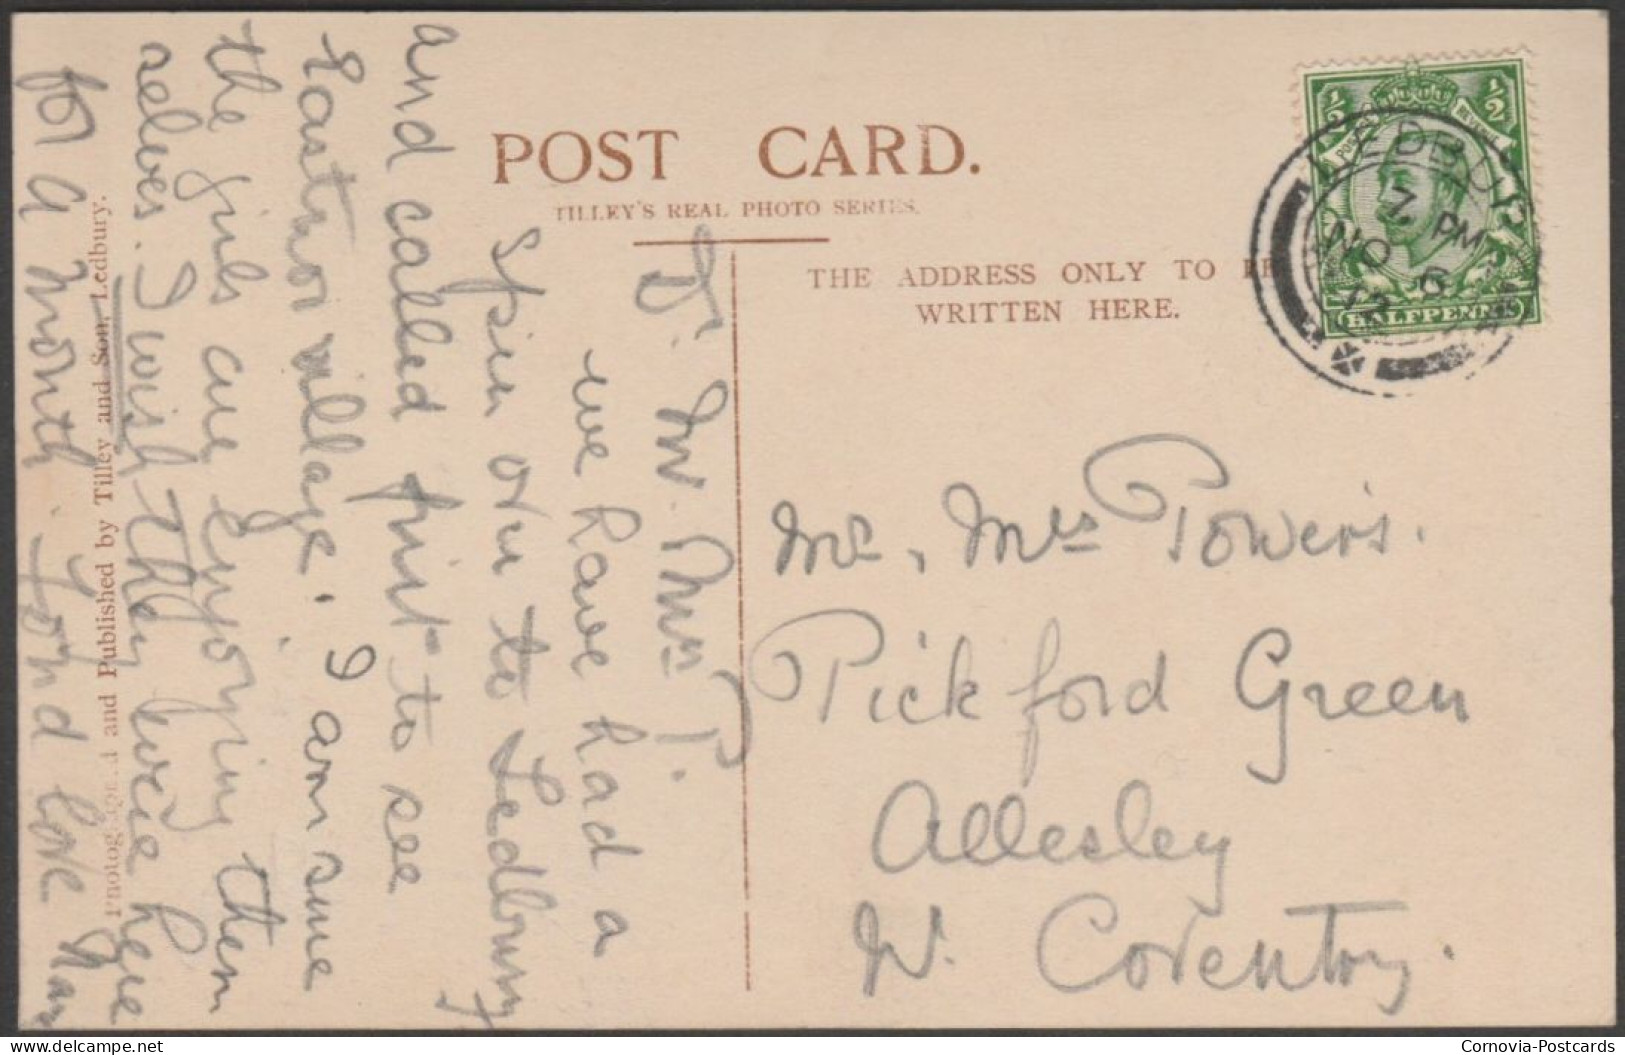 POST CARD.
TILLEY'S REAL PHOTO SERIES.
THE ADDRESS ONLY TO BE
WRITTEN HERE.
½ ½
POSTAGE REVENUE
HALFPENNY
LEDBURY
7. PM
NO 6
Dr Mr. Mrs P.
we have had a
spin over to Ledbury
and called first to see
Eastnor village. I am sure
the girls are enjoying them
selves. I wish they were here
for a month. fond love Nan
Mr, Mrs Powers.
Pickford Green
Allesley
Nr. Coventry.
Photographed and Published by Tilley and Son, Ledbury.
delcampe.net
Cornovia-Postcards